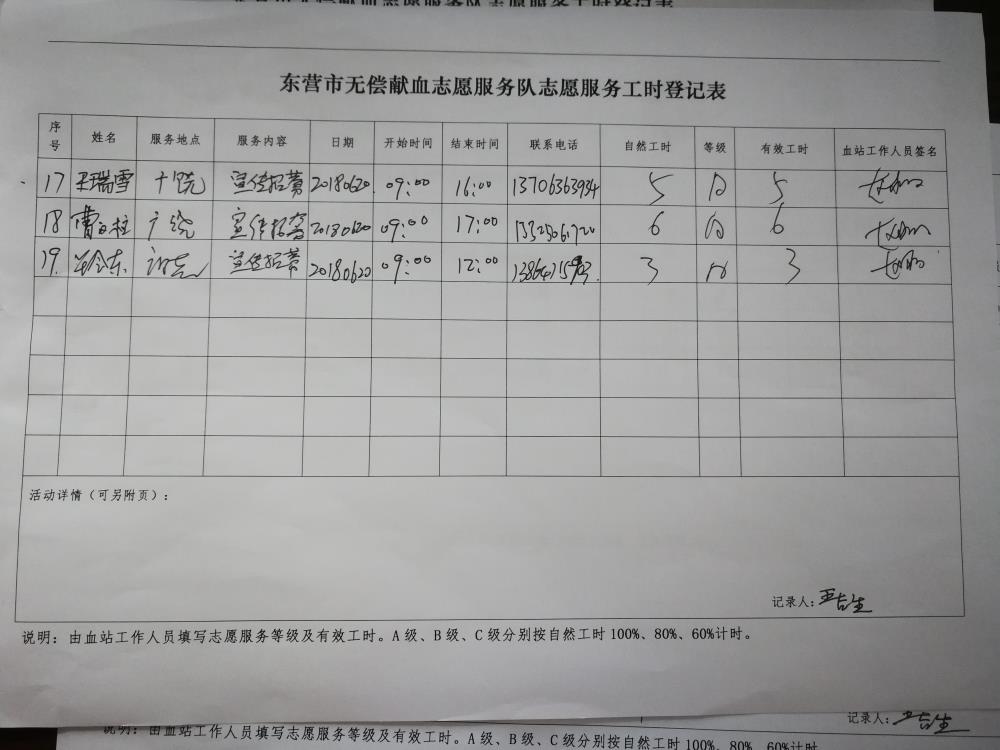 东营市无偿献血志愿服务队志愿服务工时登记表
序号 姓名 服务地点 服务内容 日期 开始时间 结束时间 联系电话 自然工时 等级 有效工时 血站工作人员签名
17 王瑞雪 广饶 宣传招募 20180620 09:00 16:00 13706363934 5 A 5
18 广饶 宣传招募 20180620 09:00 17:00 6 A 6
19. 宣传招募 20180620 09:00 12:00 3 A 3
活动详情（可另附页）：
记录人：
说明：由血站工作人员填写志愿服务等级及有效工时。A级、B级、C级分别按自然工时100%、80%、60%计时。
记录人：
说明：由血站工作人员填写志愿服务等级及有效工时。A级、B级、C级分别按自然工时100%、80%、60%计时